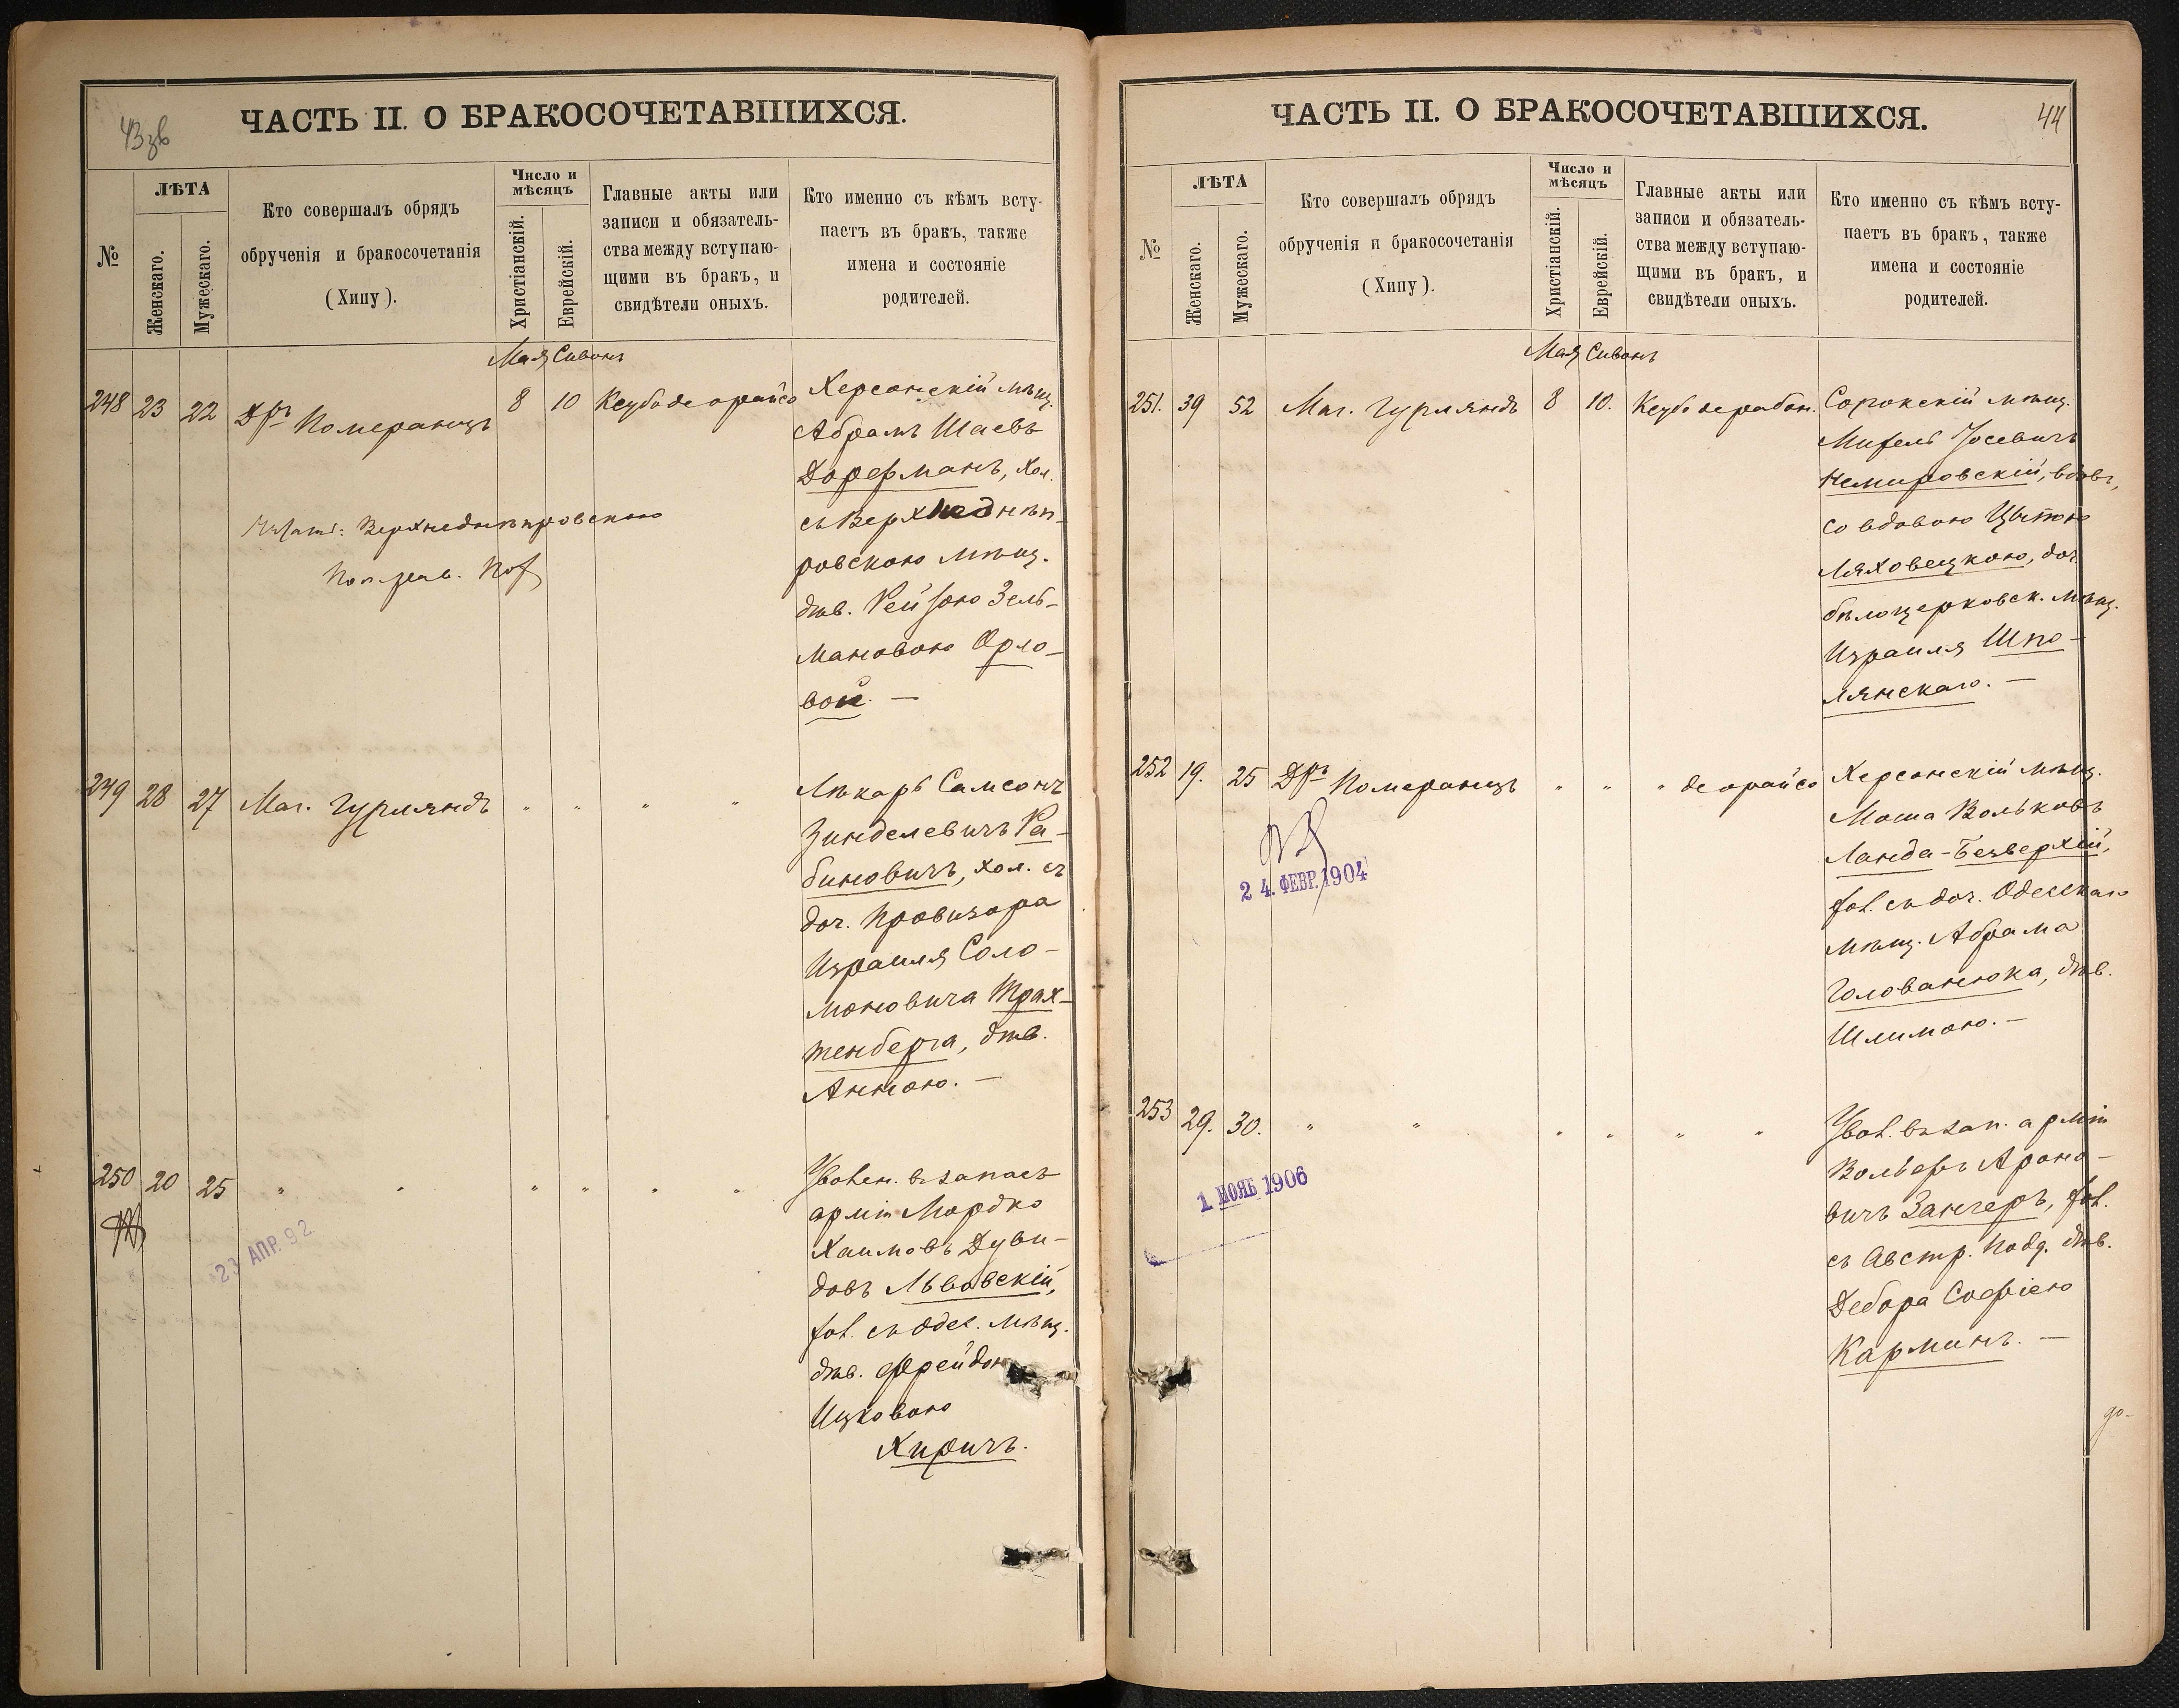 43зв
ЧАСТЬ II. О БРАКОСОЧЕТАВШИХСЯ.
№
ЛѢТА
Женскаго.
Мужескаго.
Кто совершалъ обрядъ
обрученія и бракосочетанія
(Хипу).
Число и
мѣсяцъ
Христіанскій.
Еврейскій.
Главные акты или
записи и обязатель-
ства между вступаю-
щими въ бракъ, и
свидѣтели оныхъ.
Кто именно съ кѣмъ всту-
паетъ въ бракъ, также
имена и состояніе
родителей.
Мая Сивонъ
248 23 22 Дръ Померанцъ 8 10 Ксубо де орайсо
Херсонскій мѣщ.
Абрамъ Шаевъ
Дорфманъ, хол.
съ Верхнеднѣп-
ровскою мѣщ.
дѣв. Рейзою Зель-
мановою Орло-
вой. —
Верхнеднѣпровскою
249 28 27 Маг. Гурляндъ " " " "
Лѣкарь Самсонъ
Зинделевичъ Ра-
биновичъ, хол. съ
доч. Провизора
Израиля Соло-
моновича Трах-
тенберга, дѣв.
Анною. —
250 20 25 " " " " " "
23 АПР. 92
Уволен. въ запасъ
арміи Мордко
Хаимовъ Дуви-
довъ Львовскій,
хол. съ Одес. мѣщ.
дѣв. Фрейдою
Ицковою
Хиричъ.
44
ЧАСТЬ II. О БРАКОСОЧЕТАВШИХСЯ.
№
ЛѢТА
Женскаго.
Мужескаго.
Кто совершалъ обрядъ
обрученія и бракосочетанія
(Хипу).
Число и
мѣсяцъ
Христіанскій.
Еврейскій.
Главные акты или
записи и обязатель-
ства между вступаю-
щими въ бракъ, и
свидѣтели оныхъ.
Кто именно съ кѣмъ всту-
паетъ въ бракъ, также
имена и состояніе
родителей.
Мая Сивонъ
251. 39 52 Маг. Гурляндъ 8 10. Ксубо дерабон.
Сорокскій мѣщ.
Іосевичъ
Немировскій, вдовъ,
со вдовою Цѣтою
Ляховецкою, доч.
бѣлоцерковск. мѣщ.
Израиля Шпо-
лянскаго. —
252 19. 25 Дръ Померанцъ " " " де орайсо
24. ФЕВР. 1904
Херсонскій мѣщ.
Моша Вольковъ
Ланда-Безверхій,
хол. съ доч. Одесскаго
мѣщ. Абрама
Голованюка, дѣв.
Шлимою. —
253 29. 30. " " " " " "
1. НОЯБ 1906
Увол. въ зап. арміи
Вольфъ Ароно-
вичъ Зангеръ, хол.
съ Австр. подд. дѣв.
Дебора Софіею
Карминъ. —